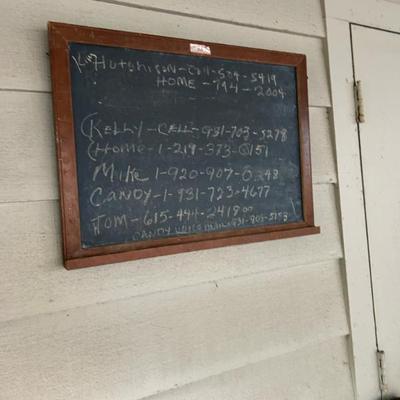 Hutchison - Cell - 504 - 5419
HOME - 794 - 2004
(KELLY - CELL - 931-703-5278
(Home - 1-219-373-0151
Mike 1-920-907-0248
CANDY - 1-931-723-4677
TOM - 615-444-2418
CANDY